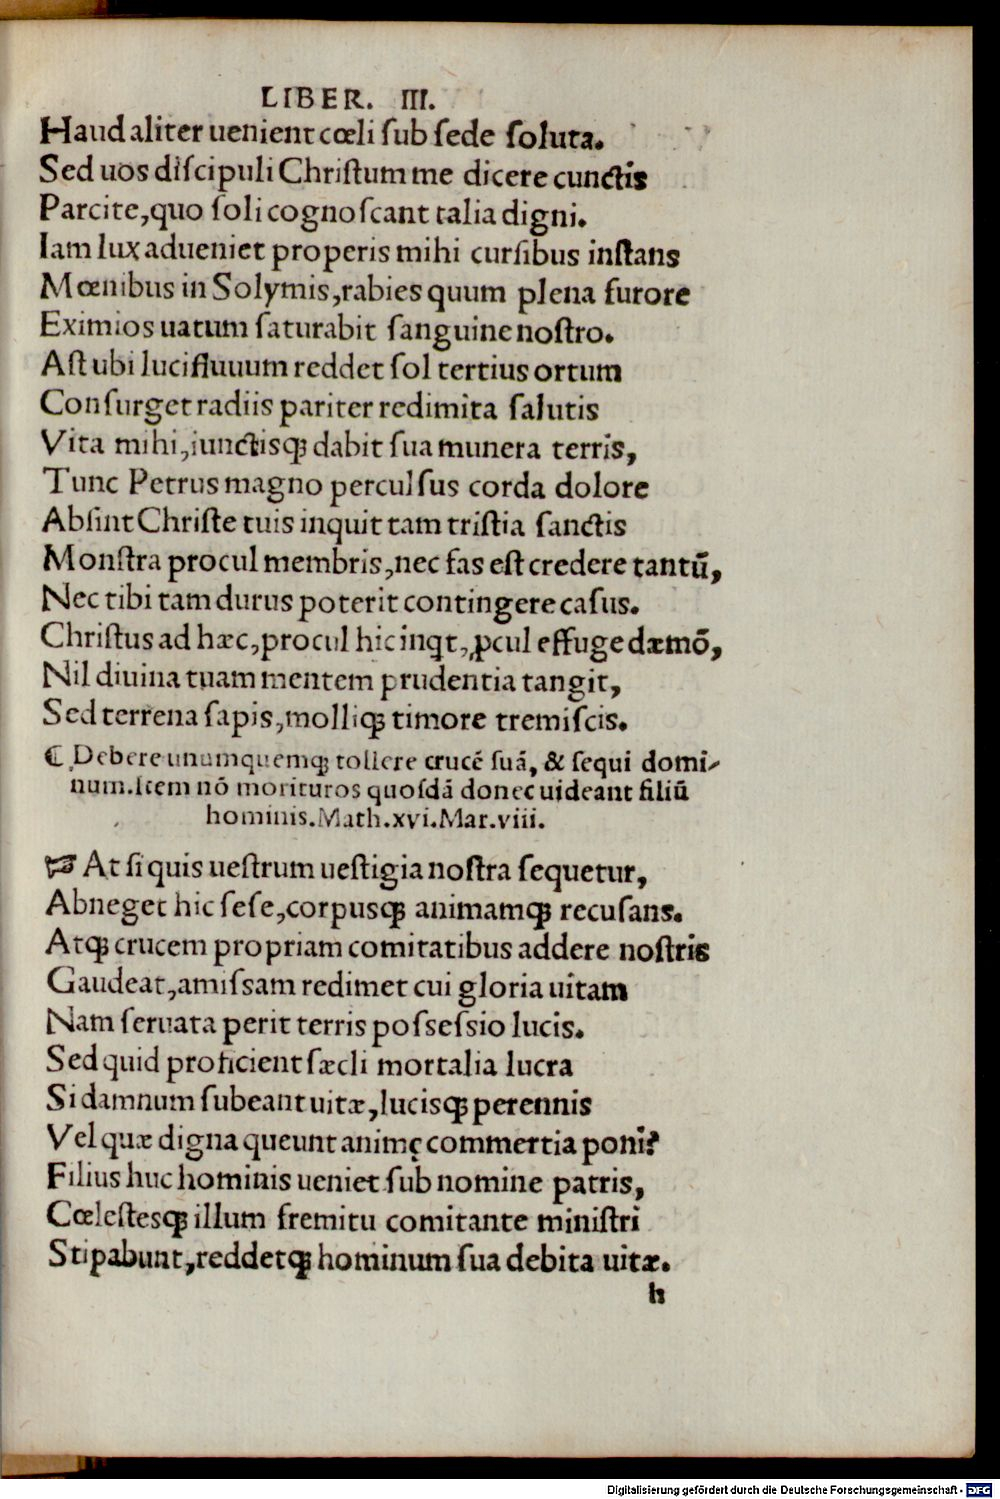 LIBER. III.
Haud aliter uenient cœli ſub ſede ſoluta.
Sed uos diſcipuli Chriſtum me dicere cunctis
Parcite, quo ſoli cognoſcant talia digni.
Iam lux adueniet properis mihi curſibus inſtans
Mœnibus in Solymis, rabies quum plena furore
Eximios uatum ſaturabit ſanguine noſtro.
Aſt ubi lucifluuum reddet ſol tertius ortum
Conſurget radiis pariter redimita ſalutis
Vita mihi, iunctisqꝫ dabit ſua munera terris,
Tunc Petrus magno perculſus corda dolore
Abſint Chriſte tuis inquit tam triſtia ſanctis
Monſtra procul membris, nec fas eſt credere tantũ,
Nec tibi tam durus poterit contingere caſus.
Chriſtus ad hæc, procul hic inꝗt, ꝓcul effuge dæmõ,
Nil diuina tuam mentem prudentia tangit,
Sed terrena ſapis, molliqꝫ timore tremiſcis.
⸿ Debere unumquemqꝫ tollere crucẽ ſuã, & ſequi domi-
num. Item nõ morituros quoſdã donec uideant filiũ
hominis. Math. xvi. Mar. viii.
☞ At ſi quis ueſtrum ueſtigia noſtra ſequetur,
Abneget hic ſeſe, corpusqꝫ animamqꝫ recuſans.
Atqꝫ crucem propriam comitatibus addere noſtris
Gaudeat, amiſſam redimet cui gloria uitam
Nam ſeruata perit terris poſſeſſio lucis.
Sed quid proficient ſæcli mortalia lucra
Si damnum ſubeant uitæ, lucisqꝫ perennis
Vel quæ digna queunt animę commertia poni?
Filius huc hominis ueniet ſub nomine patris,
Cœleſtesqꝫ illum fremitu comitante miniſtri
Stipabunt, reddetqꝫ hominum ſua debita uitæ.
h
Digitalisierung gefördert durch die Deutsche Forschungsgemeinschaft - DFG